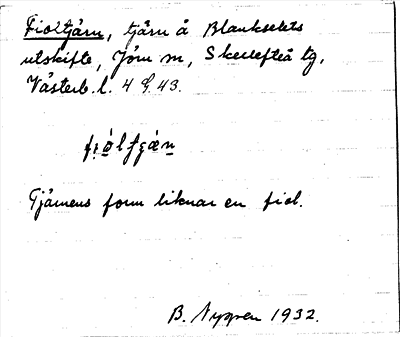 Fioltjärn, tjärn å Blankselets
utskifte, Jörn sn, Skellefteå tg,
Västerb. l. 4 G 43.
Tjärnens form liknar en fiol.
B. Nygren 1932.